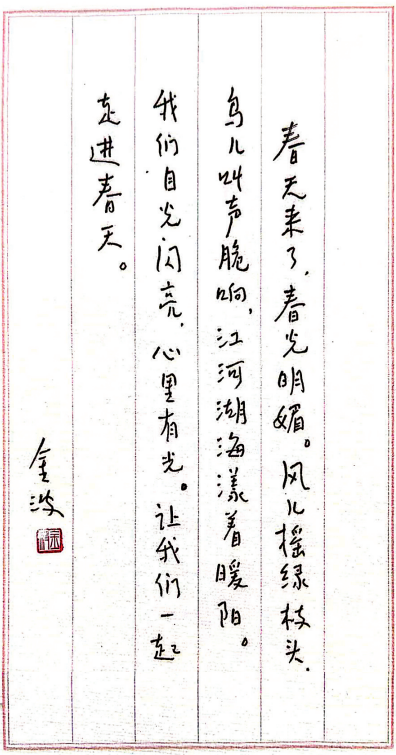 春天来了，春光明媚。风儿摇绿枝头，
鸟儿叫声脆响，江河湖海漾着暖阳。
我们目光闪亮，心里有光。让我们一起
走进春天。
金波